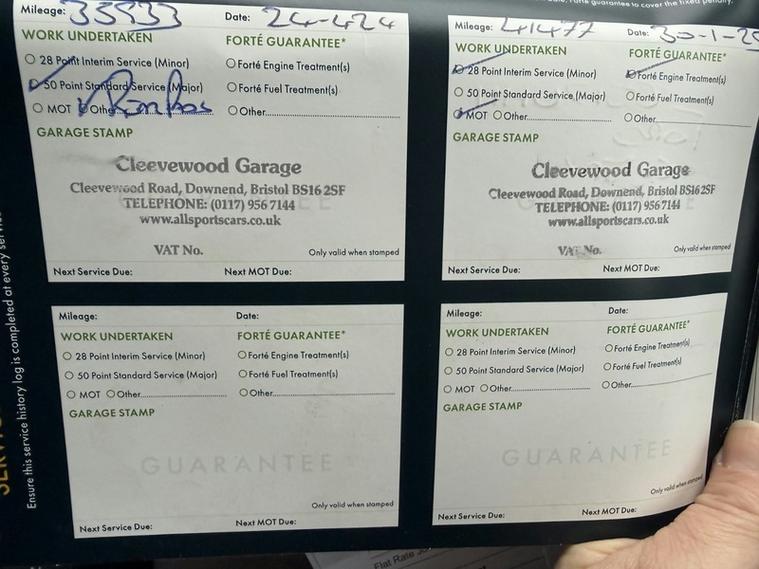 Forté guarantee to cover the fixed penalty.
Mileage: 35933 Date: 24-424
WORK UNDERTAKEN FORTÉ GUARANTEE*
28 Point Interim Service (Minor) Forté Engine Treatment(s)
50 Point Standard Service (Major) Forté Fuel Treatment(s)
MOT Other Other
GARAGE STAMP
Cleevewood Garage
Cleevewood Road, Downend, Bristol BS16 2SF
TELEPHONE: (0117) 956 7144
www.allsportscars.co.uk
VAT No. Only valid when stamped
Next Service Due: Next MOT Due:
Mileage: 41477 Date: 30-1-25
WORK UNDERTAKEN FORTÉ GUARANTEE*
28 Point Interim Service (Minor) Forté Engine Treatment(s)
50 Point Standard Service (Major) Forté Fuel Treatment(s)
MOT Other Other
GARAGE STAMP
Cleevewood Garage
Cleevewood Road, Downend, Bristol BS16 2SF
TELEPHONE: (0117) 956 7144
www.allsportscars.co.uk
VAT No. Only valid when stamped
Next Service Due: Next MOT Due:
Mileage: Date:
WORK UNDERTAKEN FORTÉ GUARANTEE*
28 Point Interim Service (Minor) Forté Engine Treatment(s)
50 Point Standard Service (Major) Forté Fuel Treatment(s)
MOT Other Other
GARAGE STAMP
GUARANTEE
Only valid when stamped
Next Service Due: Next MOT Due:
Mileage: Date:
WORK UNDERTAKEN FORTÉ GUARANTEE*
28 Point Interim Service (Minor) Forté Engine Treatment(s)
50 Point Standard Service (Major) Forté Fuel Treatment(s)
MOT Other Other
GARAGE STAMP
GUARANTEE
Only valid when stamped
Next Service Due: Next MOT Due:
Ensure this service history log is completed at every
Flat Rate